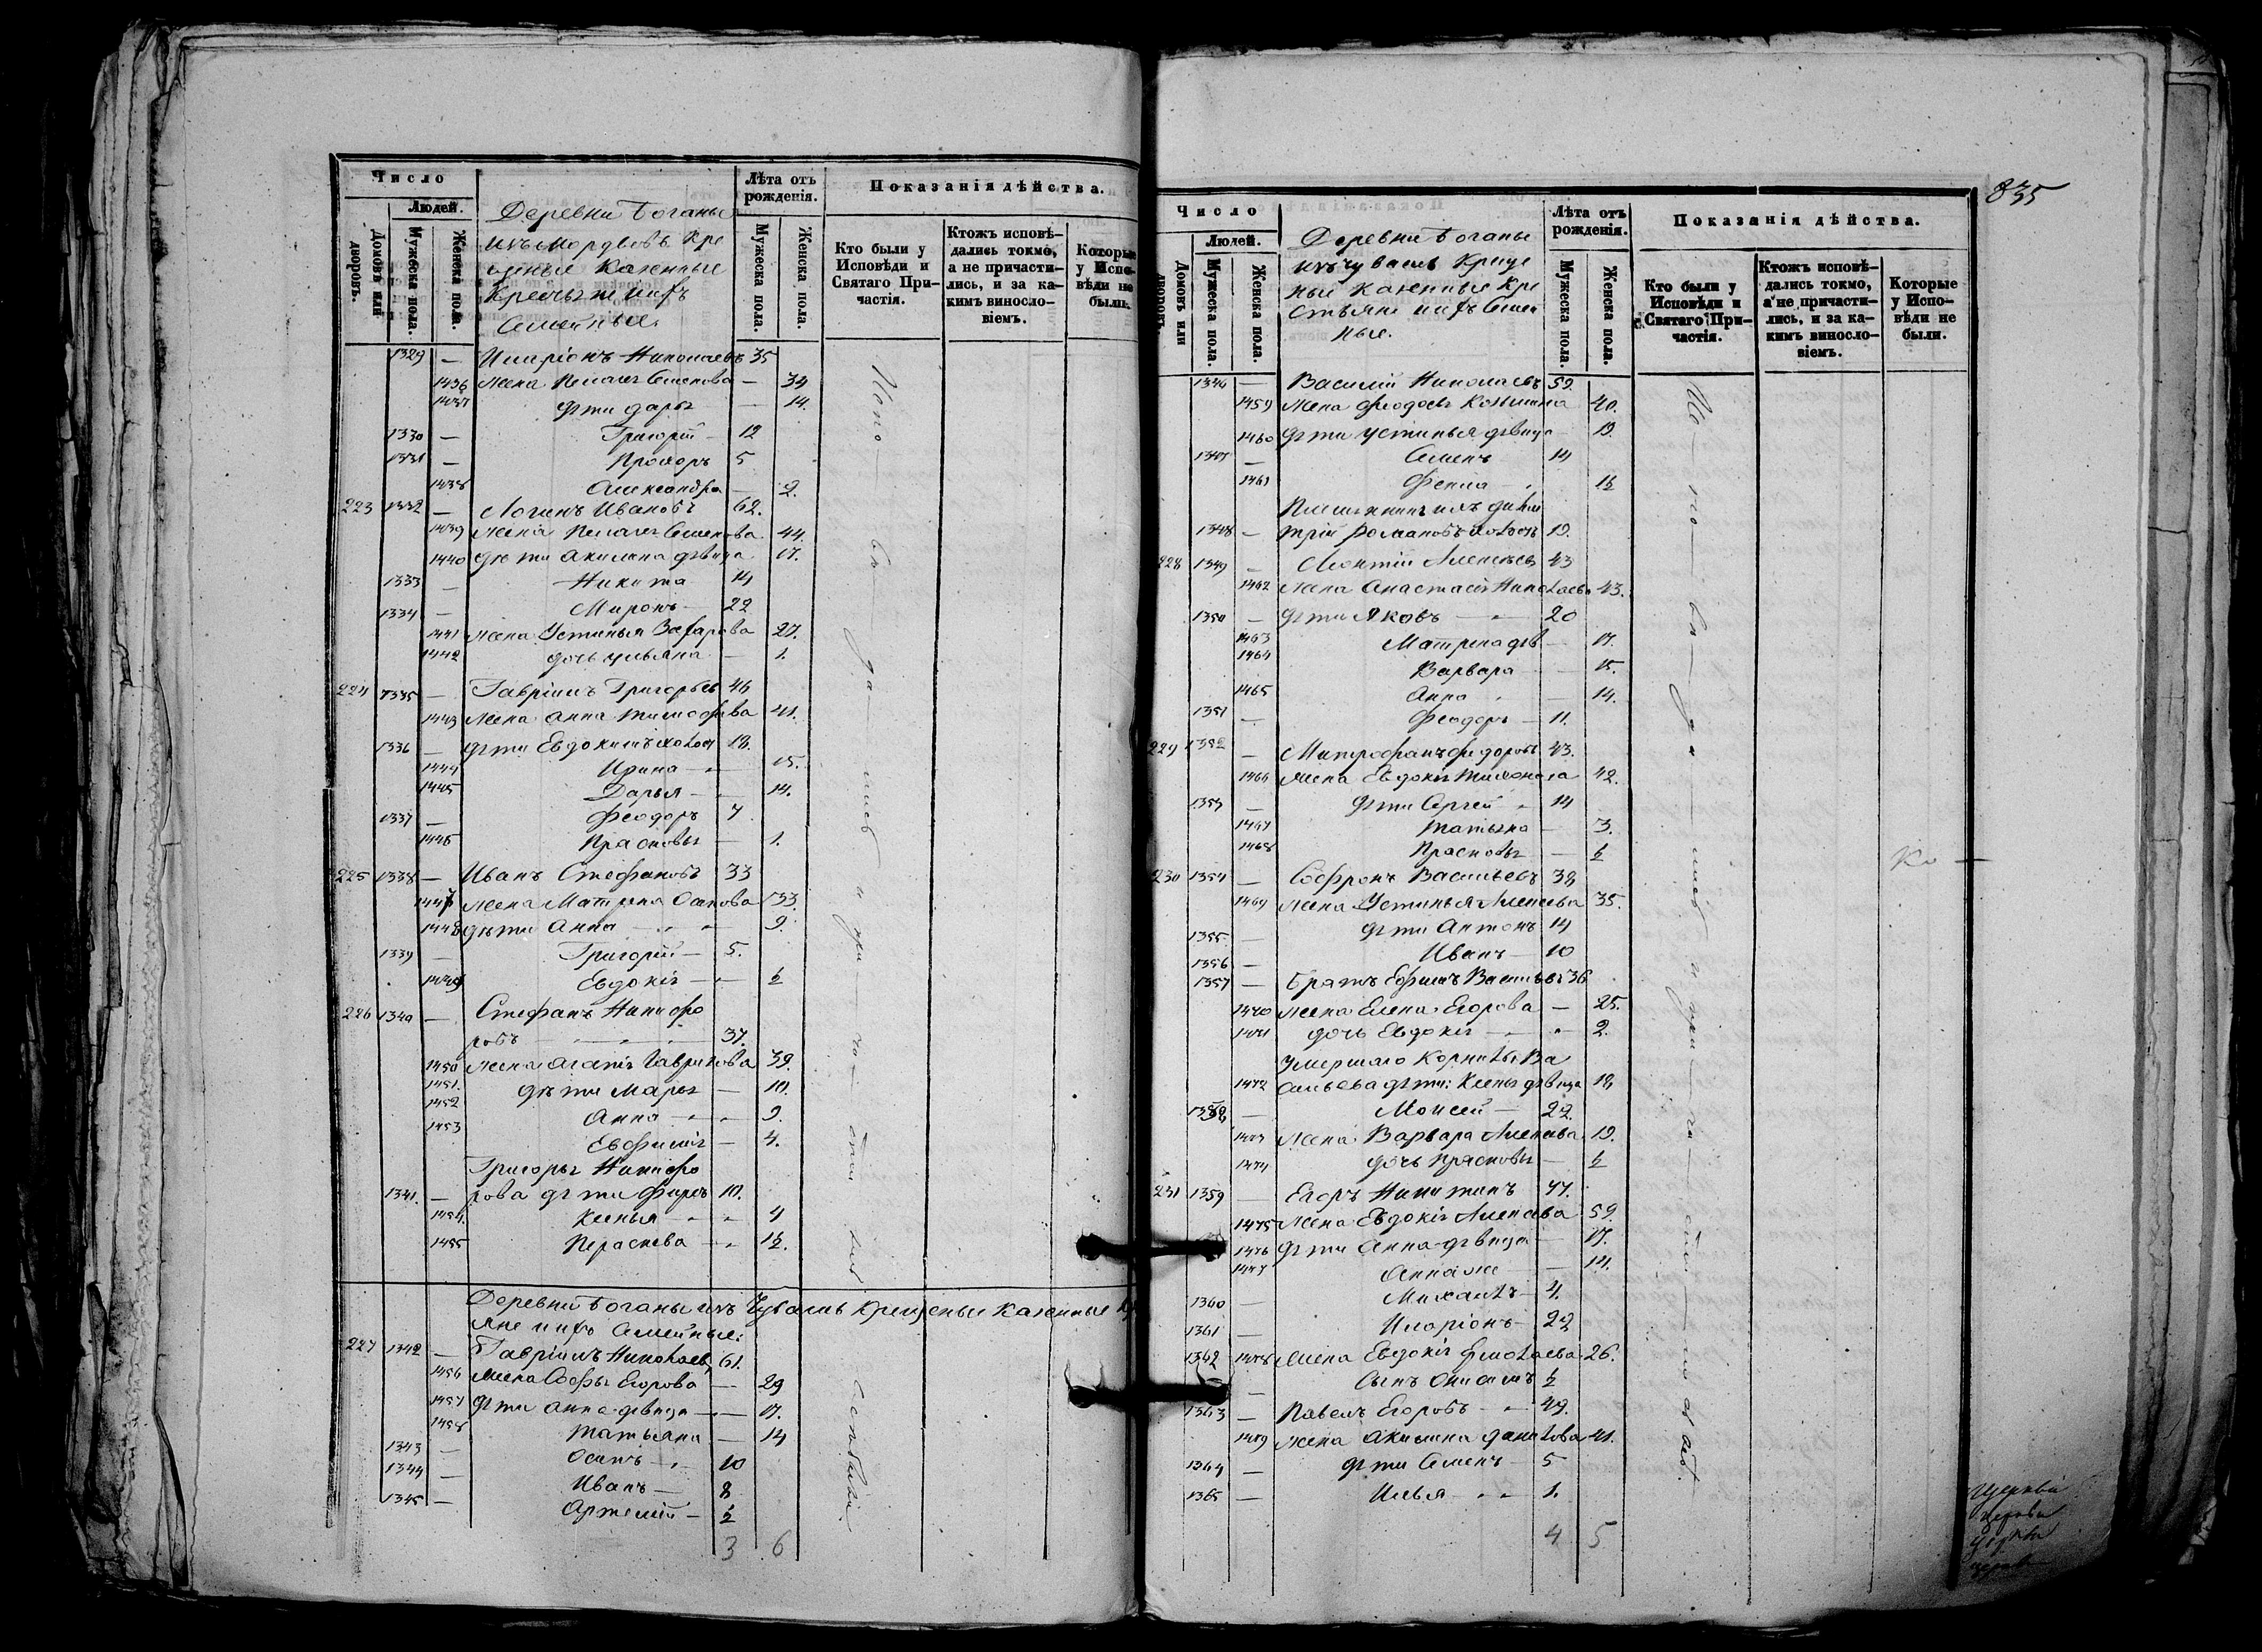 Число
Людей.
Домовъ или дворовъ.
Мужеска пола.
Женска пола.
Деревни Боганы
изъ мордвовъ Кре
щеные Казенные
Крестьяне и ихъ
Семейные.
Лѣта отъ рожденія.
Мужеска пола.
Женска пола.
Показанія дѣйства.
Кто были у Исповѣди и Святаго Причастія.
Ктожъ исповѣдались токмо, а не причастились, и за какимъ винословіемъ.
Которые у Исповѣди не были.
1329 — Иларіонъ Николаевъ 35
1436 Жена Пелагея Семенова — 34
1437 дѣти Дарья — 14.
1330 — Григорій — 12
1331 — Прохоръ 5
1438 Александра — 2.
223 1332 — Логинъ Ивановъ 62.
1439 Жена Пелагея Семенова 44.
1440 дѣти Акилина дѣвица 17.
1333 — Никита 14
1334 — Миронъ — 22
1441 жена Устинья Захарова 27.
1442 дочь Ульяна — 1.
224 1335 — Гавріилъ Григорьев 46
1443 Жена Анна Тимофѣева 41.
1336 — дѣти Евдокимъ холост 18.
1444 Ирина — 15.
1445 Дарья — 14.
1337 — Феодоръ 7
1446 Прасковья — 1.
225 1338 — Иванъ Стефановъ 33
1447 Жена Матрена Осипова 33.
1448 дѣти Анна — 9.
1339 — Григорій — 5.
1449 Евдокія — ½
226 1340 — Стефанъ Никифо
ровъ — 37.
1450 Жена Агапія Гаврилова 39.
1451. дѣти Марья — 10.
1452 Анна — 9.
1453 Евфимія — 4.
Григорья Никифо
1341. — рова дѣти Фирсъ 10.
1454. Ксенья — 4
1455 Пераскева — 12.
Деревни Боганы изъ Чувашъ Крещеные Казенные
яне и ихъ Семейные:
227 1342 — Гавріилъ Николаев 61.
1456 Жена Софья Егорова — 29
1457 дѣти Анна дѣвица — 17.
1458 Татьяна — 14
1343 — Осипъ — 10
1344 — Иванъ — 8
1345 — Артемій — ½
3 6
835
Число
Людей.
Домовъ или дворовъ.
Мужеска пола.
Женска пола.
Деревни Боганы
изъ чувашъ Креще
ные Казенные Кре
стьяне и ихъ Семей
ные.
Лѣта отъ рожденія.
Мужеска пола.
Женска пола.
Показанія дѣйства.
Кто были у Исповѣди и Святаго Причастія.
Ктожъ исповѣдались токмо, а не причастились, и за какимъ винословіемъ.
Которые у Исповѣди не были.
1346 — Василій Николаевъ 59.
1459 Жена Феодосья Козмина 40.
1460 дѣти Устинья дѣвица 19.
1347 — Семенъ 14
1461 Фекла — 12
Племянникъ ихъ Дими
1348 — трій Романовъ холост 19.
228 1349 — Леонтій Алексѣев 43
1462 Жена Анастасія Николаева 43.
1350 — дѣти Яковъ — 20
1463 Матрена дѣв — 17.
1464 Варвара — 15.
1465 Анна — 14.
1351 — Феодоръ — 11.
229 1352 — Митрофанъ Федоровъ 43.
1466 Жена Евдокія Тихонова 42.
1353 — дѣти Сергей — 14
1467 Татьяна — 3.
1468 Прасковья — ½
230 1354 — Софронъ Васильевъ 38
1469 Жена Устинья Алексеева 35.
1355 — дѣти Антонъ 14
1356 — Иванъ — 10
1357 — Братъ Ефимъ Васильевъ 36
1470 Жена Елена Егорова — 25.
1471 дочь Евдокія — 2.
Умершаго Корнилы Ва
1472 сильева дѣти: Ксенья дѣвица 18
1358 — Моисей — 22.
1473 Жена Варвара Алексеева 19.
1474 дочь Прасковья — ½
231 1359 — Егоръ Никитинъ 47.
1475 Жена Евдокія Алексеева 59.
1476 дѣти Анна дѣвица — 17.
1477 Анна же — 14.
1360 — Михаилъ — 4.
1361 — Иларіонъ — 22
1362 1478 Жена Евдокія Ермолаева 26.
— Сынъ Онисимъ ½
1363 — Павелъ Егоровъ — 42.
1479 Жена Акилина Данилова 41.
1364 — дѣти Семенъ — 5
1365 — Илья — 1.
4 5